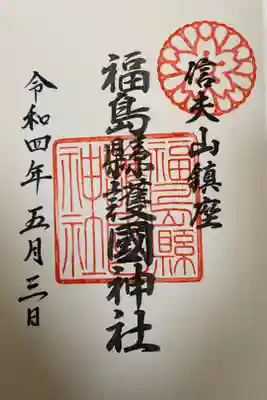 信夫山鎮座
福島縣護國神社
福島縣
神社
令和四年五月三日